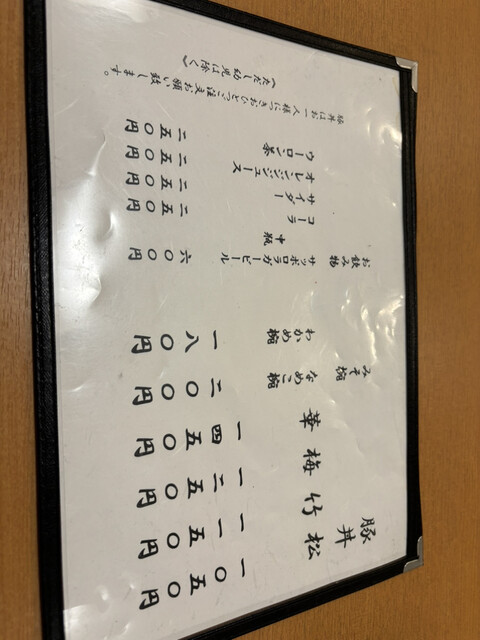 豚丼
松 一〇五〇円
竹 一一五〇円
梅 一二五〇円
華 一四五〇円
みそ椀
なめこ椀 二〇〇円
わかめ椀 一八〇円
お飲み物
サッポロラガービール 六〇〇円
中瓶
コーラ 二五〇円
サイダー 二五〇円
オレンジジュース 二五〇円
ウーロン茶 二五〇円
豚丼はお一人様につきおひとつご注文お願い致します。
《ただし幼児は除く》